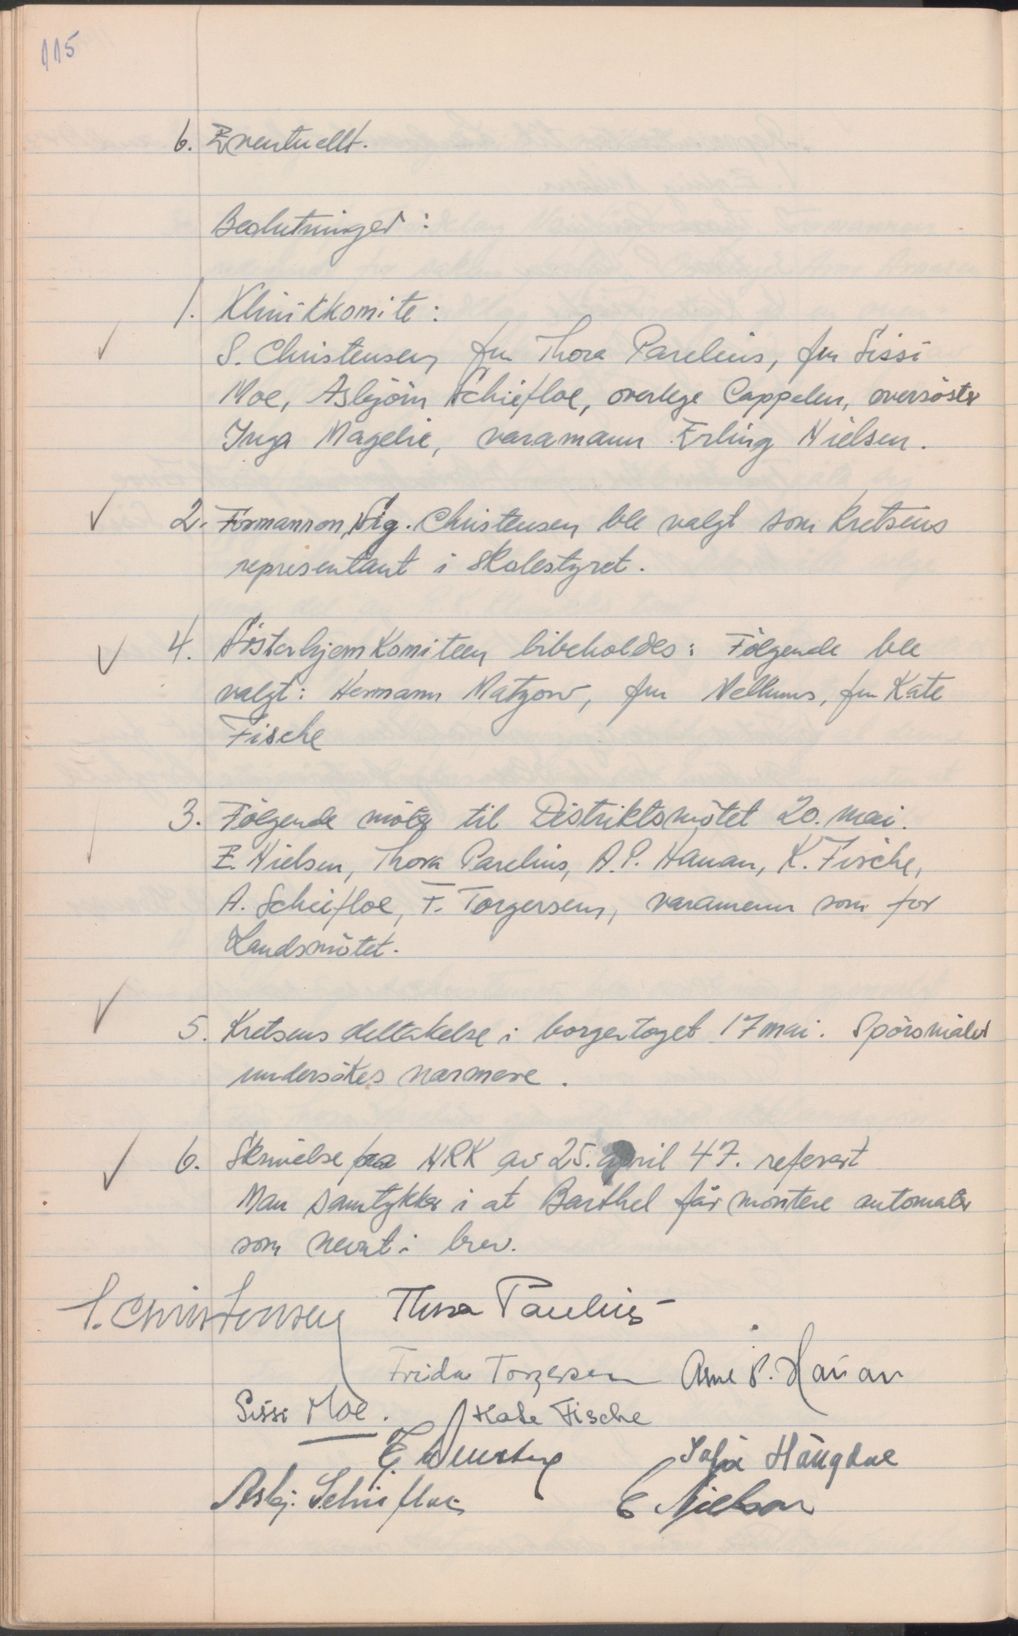 115
6. Eventuellt.
Beslutninger:
1. Klinikkomite:
S. Christensen, fru Thora Parelius, fru Sissi
Moe, Asbjörn Schiefloe, overlege Cappelen, oversöster
Inga Magelie, varamann Erling Nielsen.
2. Formannen, Sig. Christensen ble valgt som kretsens
representant i skolestyret.
4. Sösterhjemkomiteen bibeholdes: Fölgende ble
valgt: Hermann Matzow, fru Mellum, fru Kate
Fische
3. Fölgende möter til Distriktsmötet 20. mai.
E. Nielsen, Thora Parelius, A.P. Hauan, K. Fische,
A. Schiefloe, F. Torgersen, varamenn som for
Landsmötet.
5. Kretsens deltakelse i borgertoget 17 mai. Spörsmålet
undersökes narmere.
6. Skrivelse fra NRK av 25. april 47. referert
Man samtykker i at Barthel får montere automater
som nevnt i brev.
S. Christensen Thora Parelius
Frida Torgersen Arne P. Hauan
Sissi Moe. Kate Fische
Haugdal
Asbj. Schiefloe E Nielsen